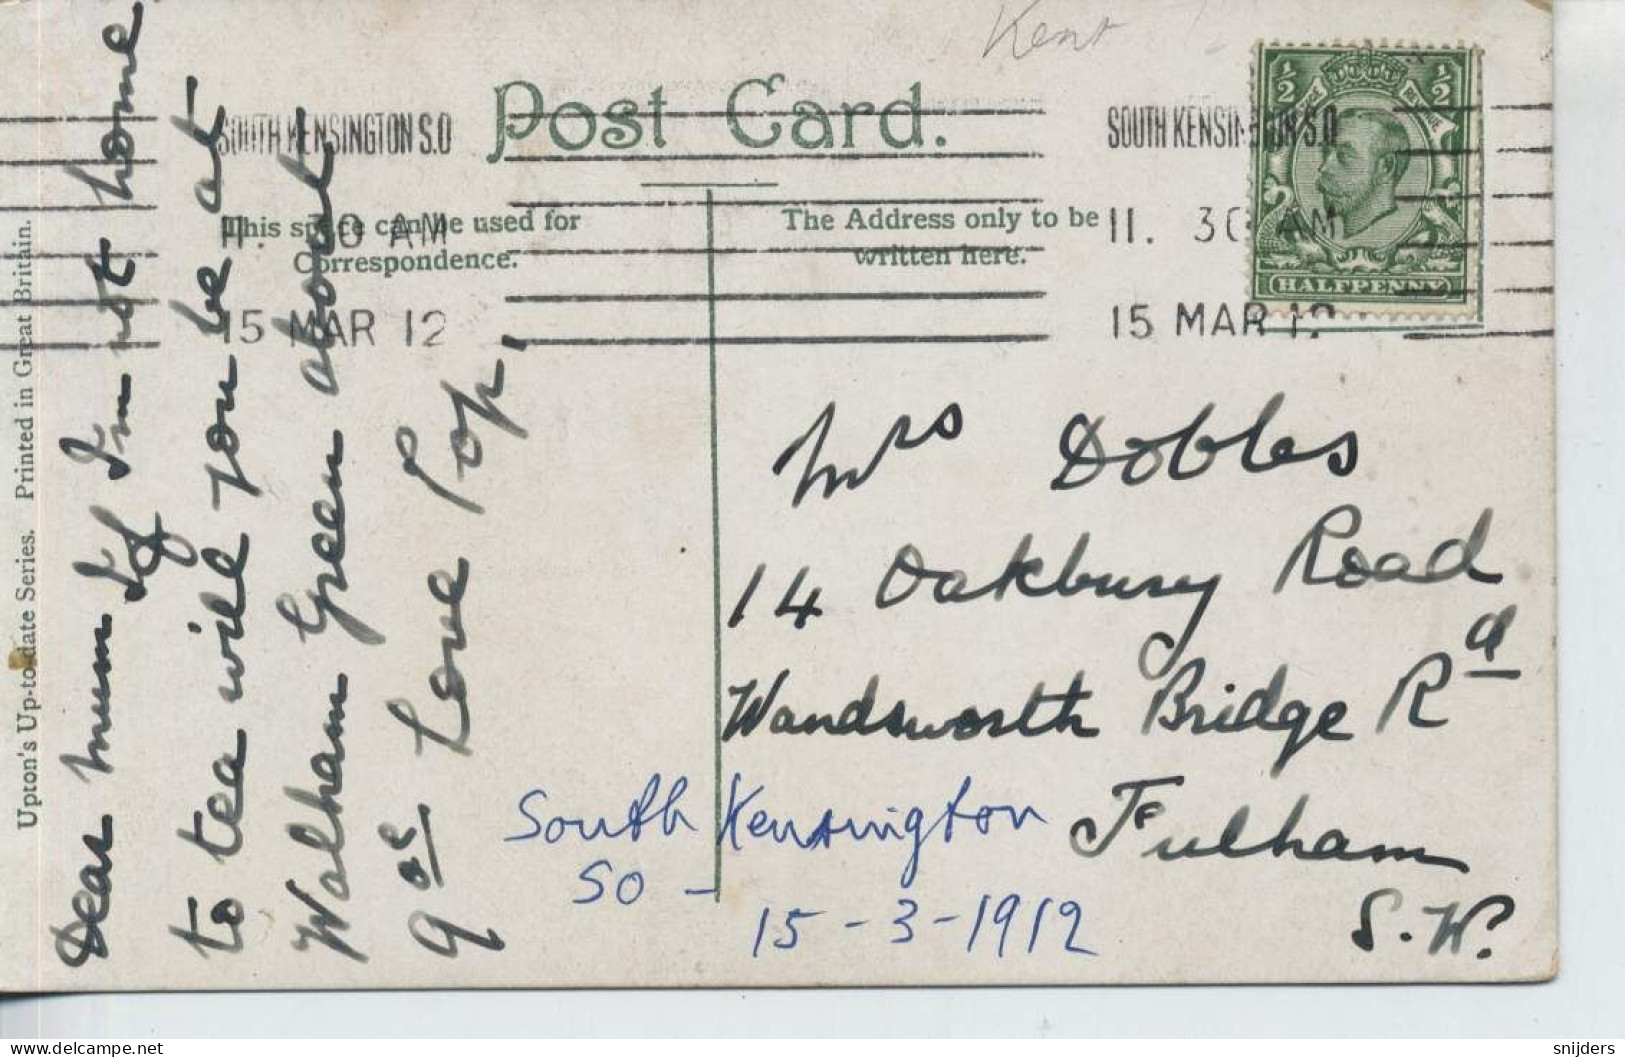 Kent
Post Card.
SOUTH KENSINGTON S.O
11. 30 AM
15 MAR 12
SOUTH KENSINGTON S.O
11. 30 AM
15 MAR 12
½ ½
HALFPENNY
This space can be used for
Correspondence.
The Address only to be
written here.
Upton's Up-to-date Series. Printed in Great Britain.
Dear mum If I'm not home
to tea will you be at
Walham Green about
9 oc Love Pop.
Mrs Dobles
14 Oakbury Road
Wandsworth Bridge Rd
Fulham
S.W.
South Kensington
SO -
15-3-1912
snijders